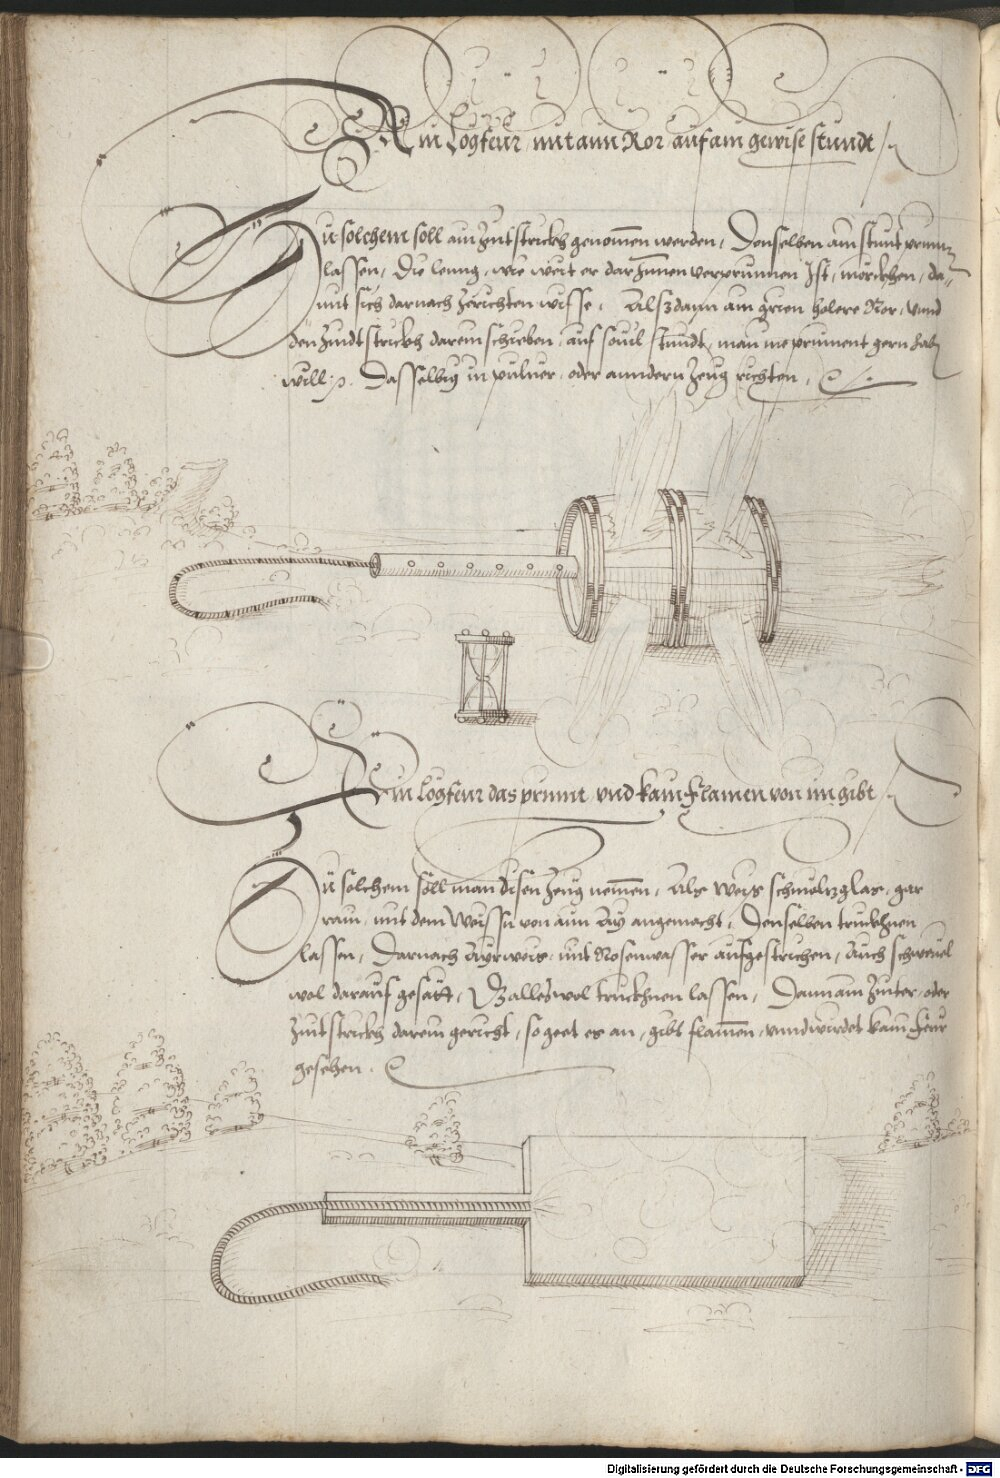 Ain Logfeur mit aim Ror auf ain gewise stundt /.
Zu solchem soll ain Zintstrickh genomen werden, Denselben ain stunt prinnen
lassen, Die leung, wie weit er darZinnen verprunnen Ist, mörckhen, da-
mit sich darnach Zerichten wisse. Alsdann ain grien holere Ror, vnnd
den Zindtstrickh darein schieben, auf souil stundt, man die prinnent gern hab
will. Dasselbig in puluer, oder anndern Zeug richten.
Ain Logfeur das prinnt, vnd kain flamen von im gibt /.
Zu solchem soll man disen Zeug nemen, Als weis schmeltzglas, gar
rain, mit dem Weissn von aim Ay angemacht, Denselben truckhnen
lassen, Darnach Ayrweis, mit Rosenwasser aufgestrichen, Auch schweuel
wol darauf gesatt, Alles wol truckhnen lassen, Dann ain Zinter, oder
Zintstrickh darein gericht, so geet es an, gibt flamen, vnnd wirdet kain feur
gesehen.
Digitalisierung gefördert durch die Deutsche Forschungsgemeinschaft - DFG